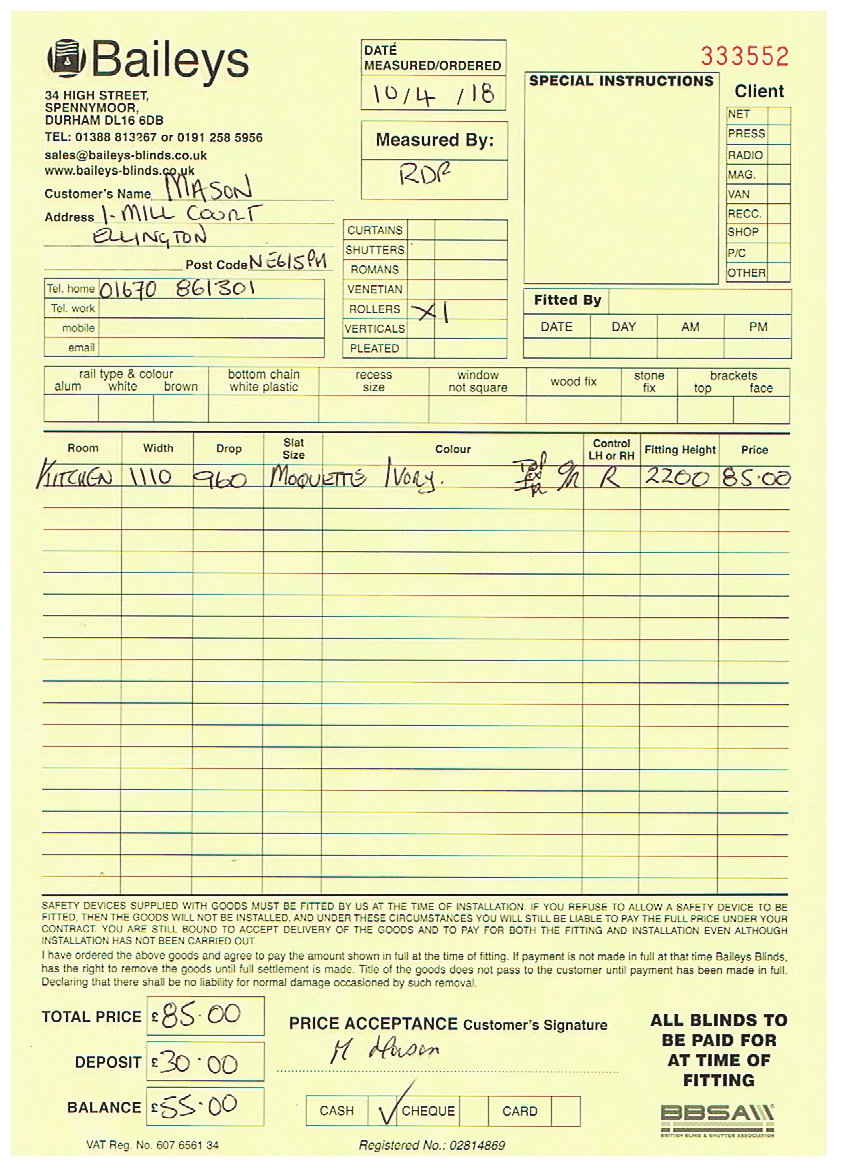 Baileys
34 HIGH STREET,
SPENNYMOOR,
DURHAM DL16 6DB
TEL: 01388 813267 or 0191 258 5956
sales@baileys-blinds.co.uk
www.baileys-blinds.co.uk
Customer's Name MASON
Address 1- MILL COURT
ELLINGTON
Post Code NE61 5PH
Tel. home 01670 861301
Tel. work
mobile
email
DATE
MEASURED/ORDERED
10/4/18
Measured By:
RDP
CURTAINS
SHUTTERS
ROMANS
VENETIAN
ROLLERS X1
VERTICALS
PLEATED
333552
SPECIAL INSTRUCTIONS
Client
NET
PRESS
RADIO
MAG.
VAN
RECC.
SHOP
P/C
OTHER
Fitted By
DATE DAY AM PM
rail type & colour bottom chain recess window wood fix stone brackets
alum white brown white plastic size not square fix top face
Room Width Drop Slat Size Colour Control LH or RH Fitting Height Price
KITCHEN 1110 960 MOQUETTE IVORY. R 2200 85.00
SAFETY DEVICES SUPPLIED WITH GOODS MUST BE FITTED BY US AT THE TIME OF INSTALLATION. IF YOU REFUSE TO ALLOW A SAFETY DEVICE TO BE
FITTED, THEN THE GOODS WILL NOT BE INSTALLED, AND UNDER THESE CIRCUMSTANCES YOU WILL STILL BE LIABLE TO PAY THE FULL PRICE UNDER YOUR
CONTRACT. YOU ARE STILL BOUND TO ACCEPT DELIVERY OF THE GOODS AND TO PAY FOR BOTH THE FITTING AND INSTALLATION EVEN ALTHOUGH
INSTALLATION HAS NOT BEEN CARRIED OUT
I have ordered the above goods and agree to pay the amount shown in full at the time of fitting. If payment is not made in full at that time Baileys Blinds,
has the right to remove the goods until full settlement is made. Title of the goods does not pass to the customer until payment has been made in full.
Declaring that there shall be no liability for normal damage occasioned by such removal.
TOTAL PRICE £85.00
DEPOSIT £30.00
BALANCE £55.00
VAT Reg. No. 607 6561 34
PRICE ACCEPTANCE Customer's Signature
M Mason
CASH ✓ CHEQUE CARD
Registered No.: 02814869
ALL BLINDS TO
BE PAID FOR
AT TIME OF
FITTING
BBSA
BRITISH BLIND & SHUTTER ASSOCIATION